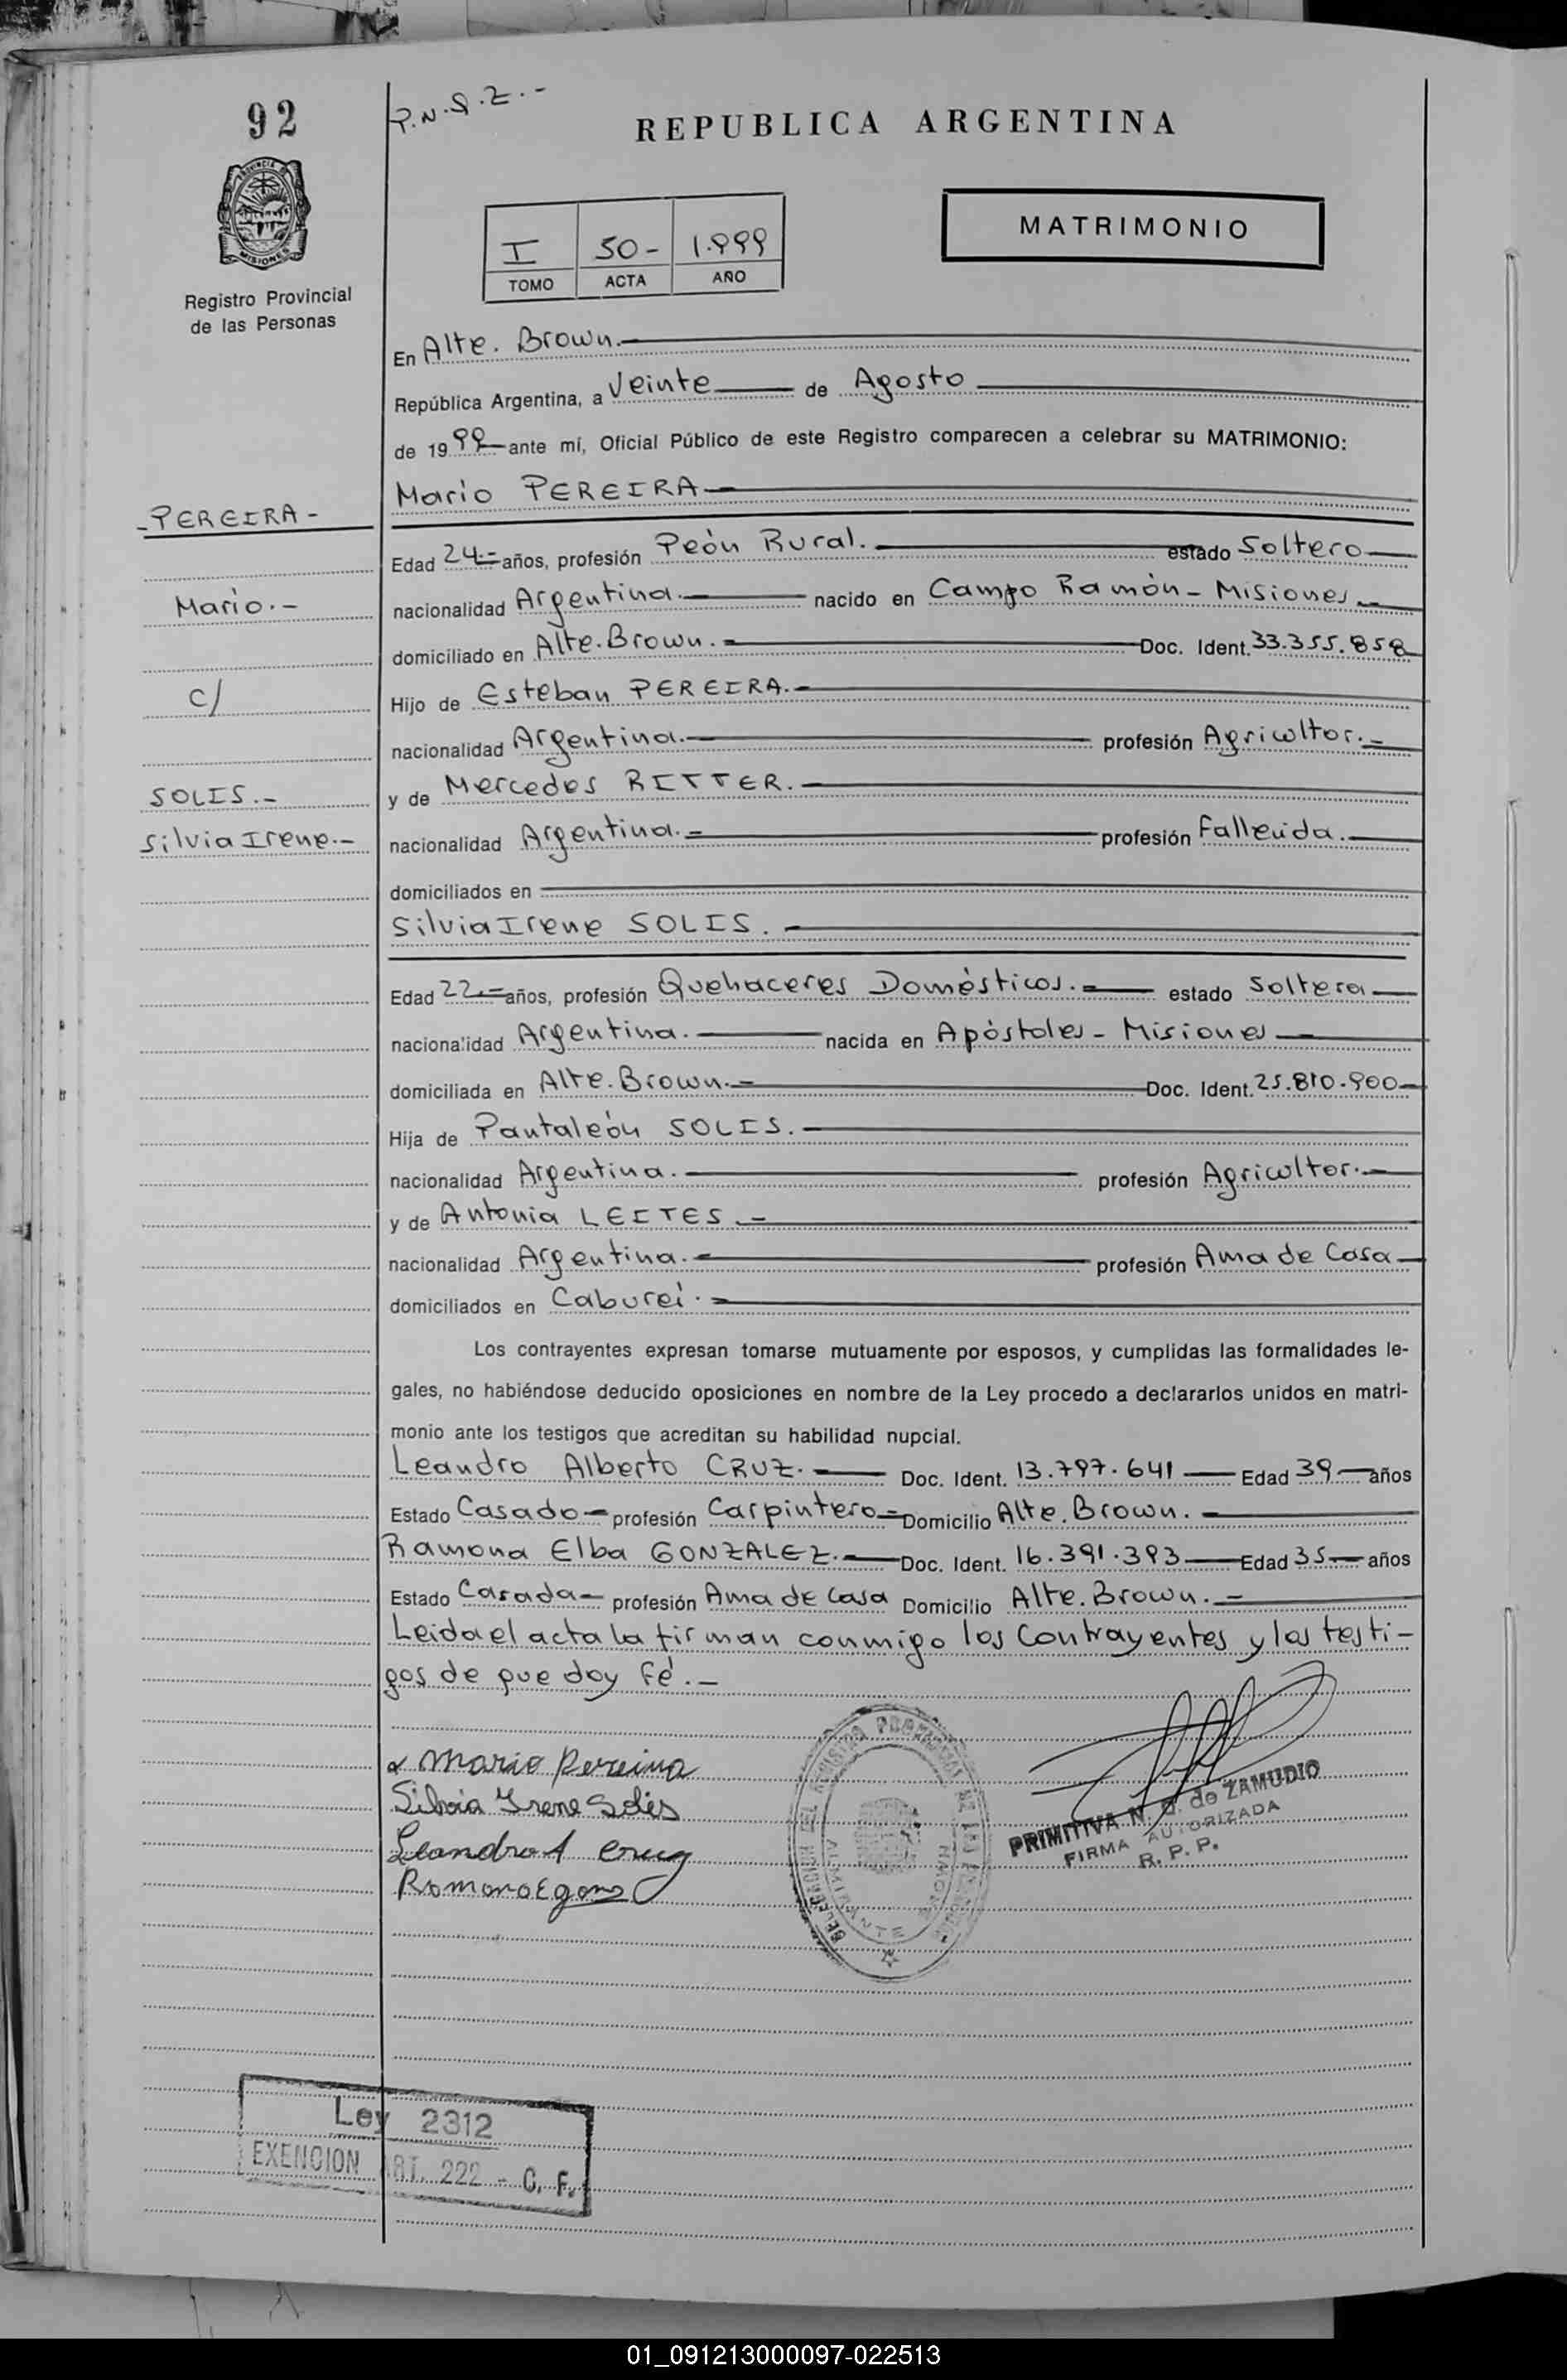 92
P.N.S.Z.-
REPUBLICA ARGENTINA
PROVINCIA
MISIONES
Registro Provincial
de las Personas
I 50- 1.999
TOMO ACTA AÑO
MATRIMONIO
En Alte. Brown.
República Argentina, a Veinte de Agosto
de 1999 ante mí, Oficial Público de este Registro comparecen a celebrar su MATRIMONIO:
-PEREIRA-
Mario.-
c/
SOLIS.-
Silvia Irene.-
Mario PEREIRA
Edad 24.- años, profesión Peòn Rural. estado Soltero
nacionalidad Argentina. nacido en Campo Ramòn- Misiones
domiciliado en Alte. Brown. Doc. Ident. 33.355.858
Hijo de Esteban PEREIRA.
nacionalidad Argentina. profesión Agricultor.-
y de Mercedes RITTER.
nacionalidad Argentina.- profesión Fallecida.
domiciliados en
Silvia Irene SOLIS.
Edad 22.- años, profesión Quehaceres Domèsticos. estado Soltera
nacionalidad Argentina. nacida en Apòstoles- Misiones
domiciliada en Alte. Brown.- Doc. Ident. 25.810.900
Hija de Pantaleòn SOLIS.
nacionalidad Argentina. profesión Agricultor.-
y de Antonia LEITES.-
nacionalidad Argentina. profesión Ama de Casa
domiciliados en Cabureì.
Los contrayentes expresan tomarse mutuamente por esposos, y cumplidas las formalidades le-
gales, no habiéndose deducido oposiciones en nombre de la Ley procedo a declararlos unidos en matri-
monio ante los testigos que acreditan su habilidad nupcial.
Leandro Alberto CRUZ. Doc. Ident. 13.797.641 Edad 39 años
Estado Casado profesión Carpintero Domicilio Alte. Brown.
Ramona Elba GONZALEZ. Doc. Ident. 16.391.393 Edad 35 años
Estado Casada profesión Ama de Casa Domicilio Alte. Brown.-
Leida el acta la firman conmigo los contrayentes y los testi-
gos de que doy fè.-
Mario Pereira
Silvia Irene Solis
Leandro A Cruz
Ramona E gonz
DELEGACION DEL REGISTRO PROVINCIAL DE LAS PERSONAS
PRIMITIVA N. S. de ZAMUDIO
FIRMA AUTORIZADA
R. P. P.
Ley 2312
EXENCION ART. 222 - C. F.
01_091213000097-022513